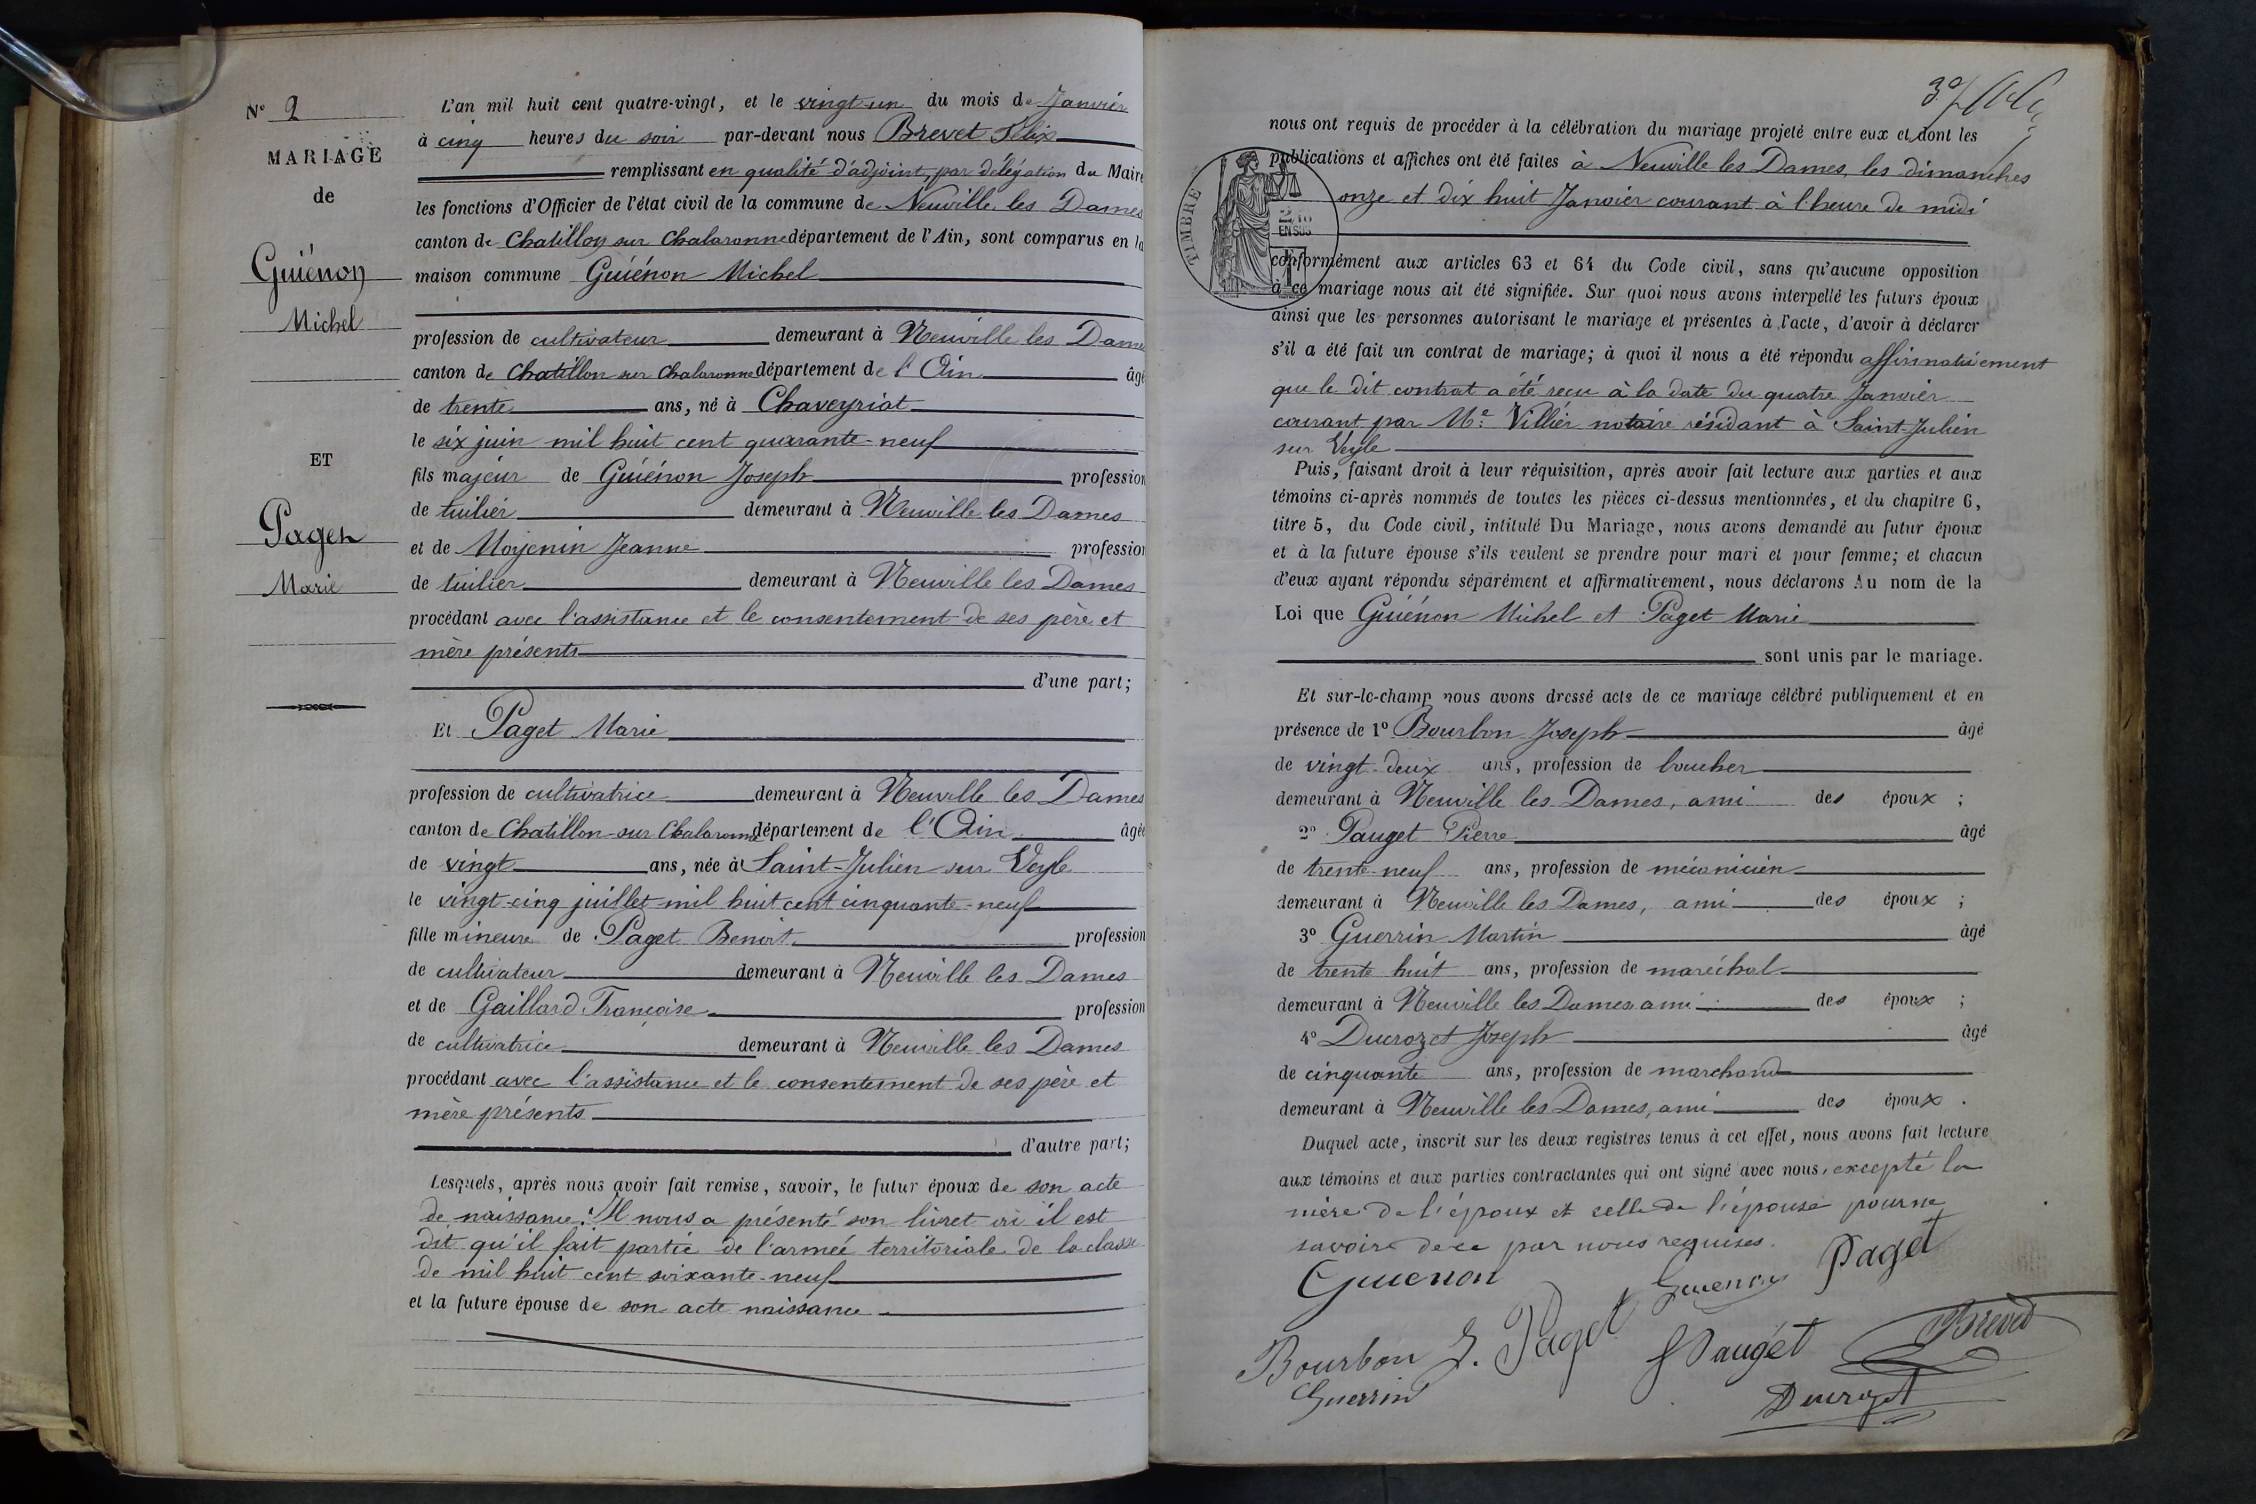 N° 2
MARIAGE
de
Guiénon
Michel
ET
Paget
Marie
L'an mil huit cent quatre-vingt, et le vingt-un du mois de Janvier
à cinq heures du soir par-devant nous Brevet Félix
remplissant en qualité d'adjoint, par délégation du Maire
les fonctions d'Officier de l'état civil de la commune de Neuville les Dames
canton de Chatillon sur Chalaronne département de l'Ain, sont comparus en la
maison commune Guiénon Michel
profession de cultivateur demeurant à Neuville les Dames
canton de Chatillon sur Chalaronne département de l'Ain âgé
de trente ans, né à Chaveyriat
le six juin mil huit cent quarante-neuf
fils majeur de Guiénon Joseph profession
de tuilier demeurant à Neuville les Dames
et de Moyenin Jeanne profession
de tuilier demeurant à Neuville les Dames
procédant avec l'assistance et le consentement de ses père et
mère présents
d'une part;
Et Paget Marie
profession de cultivatrice demeurant à Neuville les Dames
canton de Chatillon-sur Chalaronne département de l'Ain âgée
de vingt ans, née à Saint-Julien sur Veyle
le vingt-cinq juillet mil huit cent cinquante-neuf
fille mineure de Paget Benoit profession
de cultivateur demeurant à Neuville les Dames
et de Gaillard Françoise profession
de cultivatrice demeurant à Neuville les Dames
procédant avec l'assistance et le consentement de ses père et
mère présents
d'autre part;
Lesquels, après nous avoir fait remise, savoir, le futur époux de son acte
de naissance. Il nous a présenté son livret où il est
dit qu'il fait partie de l'armée territoriale de la classe
de mil huit cent soixante-neuf
et la future épouse de son acte naissance
nous ont requis de procéder à la célébration du mariage projeté entre eux et dont les
publications et affiches ont été faites à Neuville les Dames, les dimanches
onze et dix huit Janvier courant à l'heure de midi
TIMBRE
EN SUS
conformément aux articles 63 et 64 du Code civil, sans qu'aucune opposition
à ce mariage nous ait été signifiée. Sur quoi nous avons interpellé les futurs époux
ainsi que les personnes autorisant le mariage et présentes à l'acte, d'avoir à déclarer
s'il a été fait un contrat de mariage; à quoi il nous a été répondu affirmativement
que le dit contrat a été reçu à la date du quatre Janvier
courant par Me Villier notaire résidant à Saint-Julien
sur Veyle
Puis, faisant droit à leur réquisition, après avoir fait lecture aux parties et aux
témoins ci-après nommés de toutes les pièces ci-dessus mentionnées, et du chapitre 6,
titre 5, du Code civil, intitulé Du Mariage, nous avons demandé au futur époux
et à la future épouse s'ils veulent se prendre pour mari et pour femme; et chacun
d'eux ayant répondu séparément et affirmativement, nous déclarons Au nom de la
Loi que Guiénon Michel et Paget Marie
sont unis par le mariage.
Et sur-le-champ nous avons dressé acte de ce mariage célébré publiquement et en
présence de 1° Bourbon Joseph âgé
de vingt-deux ans, profession de boucher
demeurant à Neuville les Dames, ami des époux ;
2° Pauget Pierre âgé
de trente-neuf ans, profession de mécanicien
demeurant à Neuville les Dames, ami des époux ;
3° Guerrin Martin âgé
de trente huit ans, profession de maréchal
demeurant à Neuville les Dames ami des époux ;
4° Ducrozet Joseph âgé
de cinquante ans, profession de marchand
demeurant à Neuville les Dames, ami des époux .
Duquel acte, inscrit sur les deux registres tenus à cet effet, nous avons fait lecture
aux témoins et aux parties contractantes qui ont signé avec nous, excepté la
mère de l'époux et celle de l'épouse pour ne
savoir de ce par nous requises.
Guenon Guenon Paget
Bourbon J. Paget Pauget Brevet
Guerrin Ducrozet